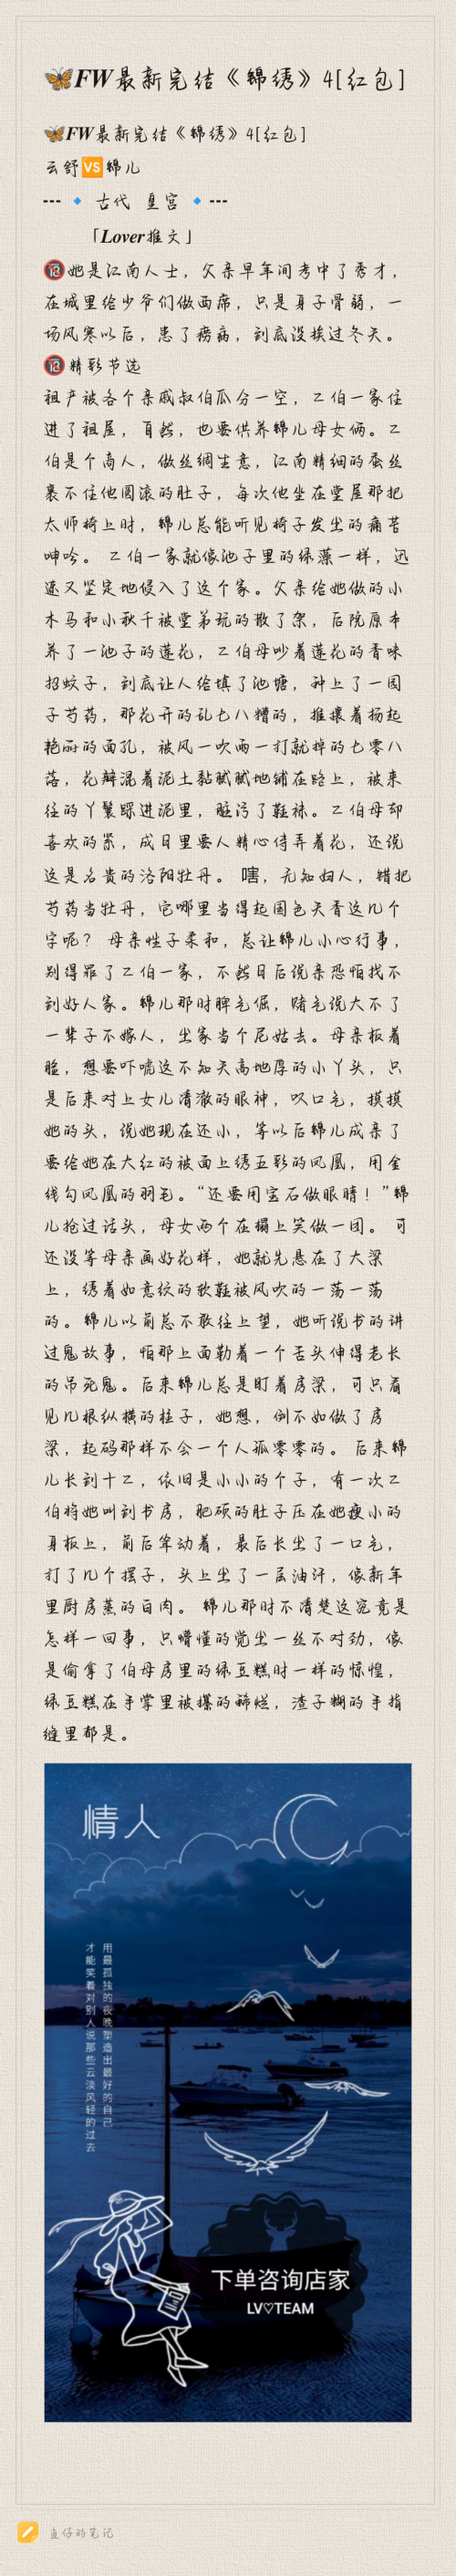 🦋FW最新完结《锦绣》4[红包]
🦋FW最新完结《锦绣》4[红包]
云舒🆚锦儿
--- 🔹 古代 皇宫 🔹---
「Lover推文」
🔞她是江南人士，父亲早年间考中了秀才，
在城里给少爷们做西席，只是身子骨弱，一
场风寒以后，患了痨病，到底没挨过冬天。
🔞精彩节选
祖产被各个亲戚叔伯瓜分一空，二伯一家住
进了祖屋，自然，也要供养锦儿母女俩。二
伯是个商人，做丝绸生意，江南精细的蚕丝
裹不住他圆滚的肚子，每次他坐在堂屋那把
太师椅上时，锦儿总能听见椅子发出的痛苦
呻吟。 二伯一家就像池子里的绿藻一样，迅
速又坚定地侵入了这个家。父亲给她做的小
木马和小秋千被堂弟玩的散了架，后院原本
养了一池子的莲花，二伯母吵着莲花的香味
招蚊子，到底让人给填了池塘，种上了一园
子芍药，那花开的乱七八糟的，推攘着扬起
艳丽的面孔，被风一吹雨一打就掉的七零八
落，花瓣混着泥土黏腻腻地铺在路上，被来
往的丫鬟踩进泥里，脏污了鞋袜。二伯母却
喜欢的紧，成日里要人精心侍弄着花，还说
这是名贵的洛阳牡丹。 嗐，无知妇人，错把
芍药当牡丹，它哪里当得起国色天香这几个
字呢？ 母亲性子柔和，总让锦儿小心行事，
别得罪了二伯一家，不然日后说亲恐怕找不
到好人家。锦儿那时脾气倔，赌气说大不了
一辈子不嫁人，出家当个尼姑去。母亲板着
脸，想要吓唬这不知天高地厚的小丫头，只
是后来对上女儿清澈的眼神，叹口气，摸摸
她的头，说她现在还小，等以后锦儿成亲了
要给她在大红的被面上绣五彩的凤凰，用金
线勾凤凰的羽毛。“还要用宝石做眼睛！”锦
儿抢过话头，母女两个在榻上笑做一团。 可
还没等母亲画好花样，她就先悬在了大梁
上，绣着如意纹的软鞋被风吹的一荡一荡
的。锦儿以前总不敢往上望，她听说书的讲
过鬼故事，怕那上面勒着一个舌头伸得老长
的吊死鬼。后来锦儿总是盯着房梁，可只看
见几根纵横的柱子，她想，倒不如做了房
梁，起码那样不会一个人孤零零的。
情人
用最孤独的夜晚塑造出最好的自己
才能笑着对别人说那些云淡风轻的过去
下单咨询店家
LV♡TEAM
鱼仔的笔记